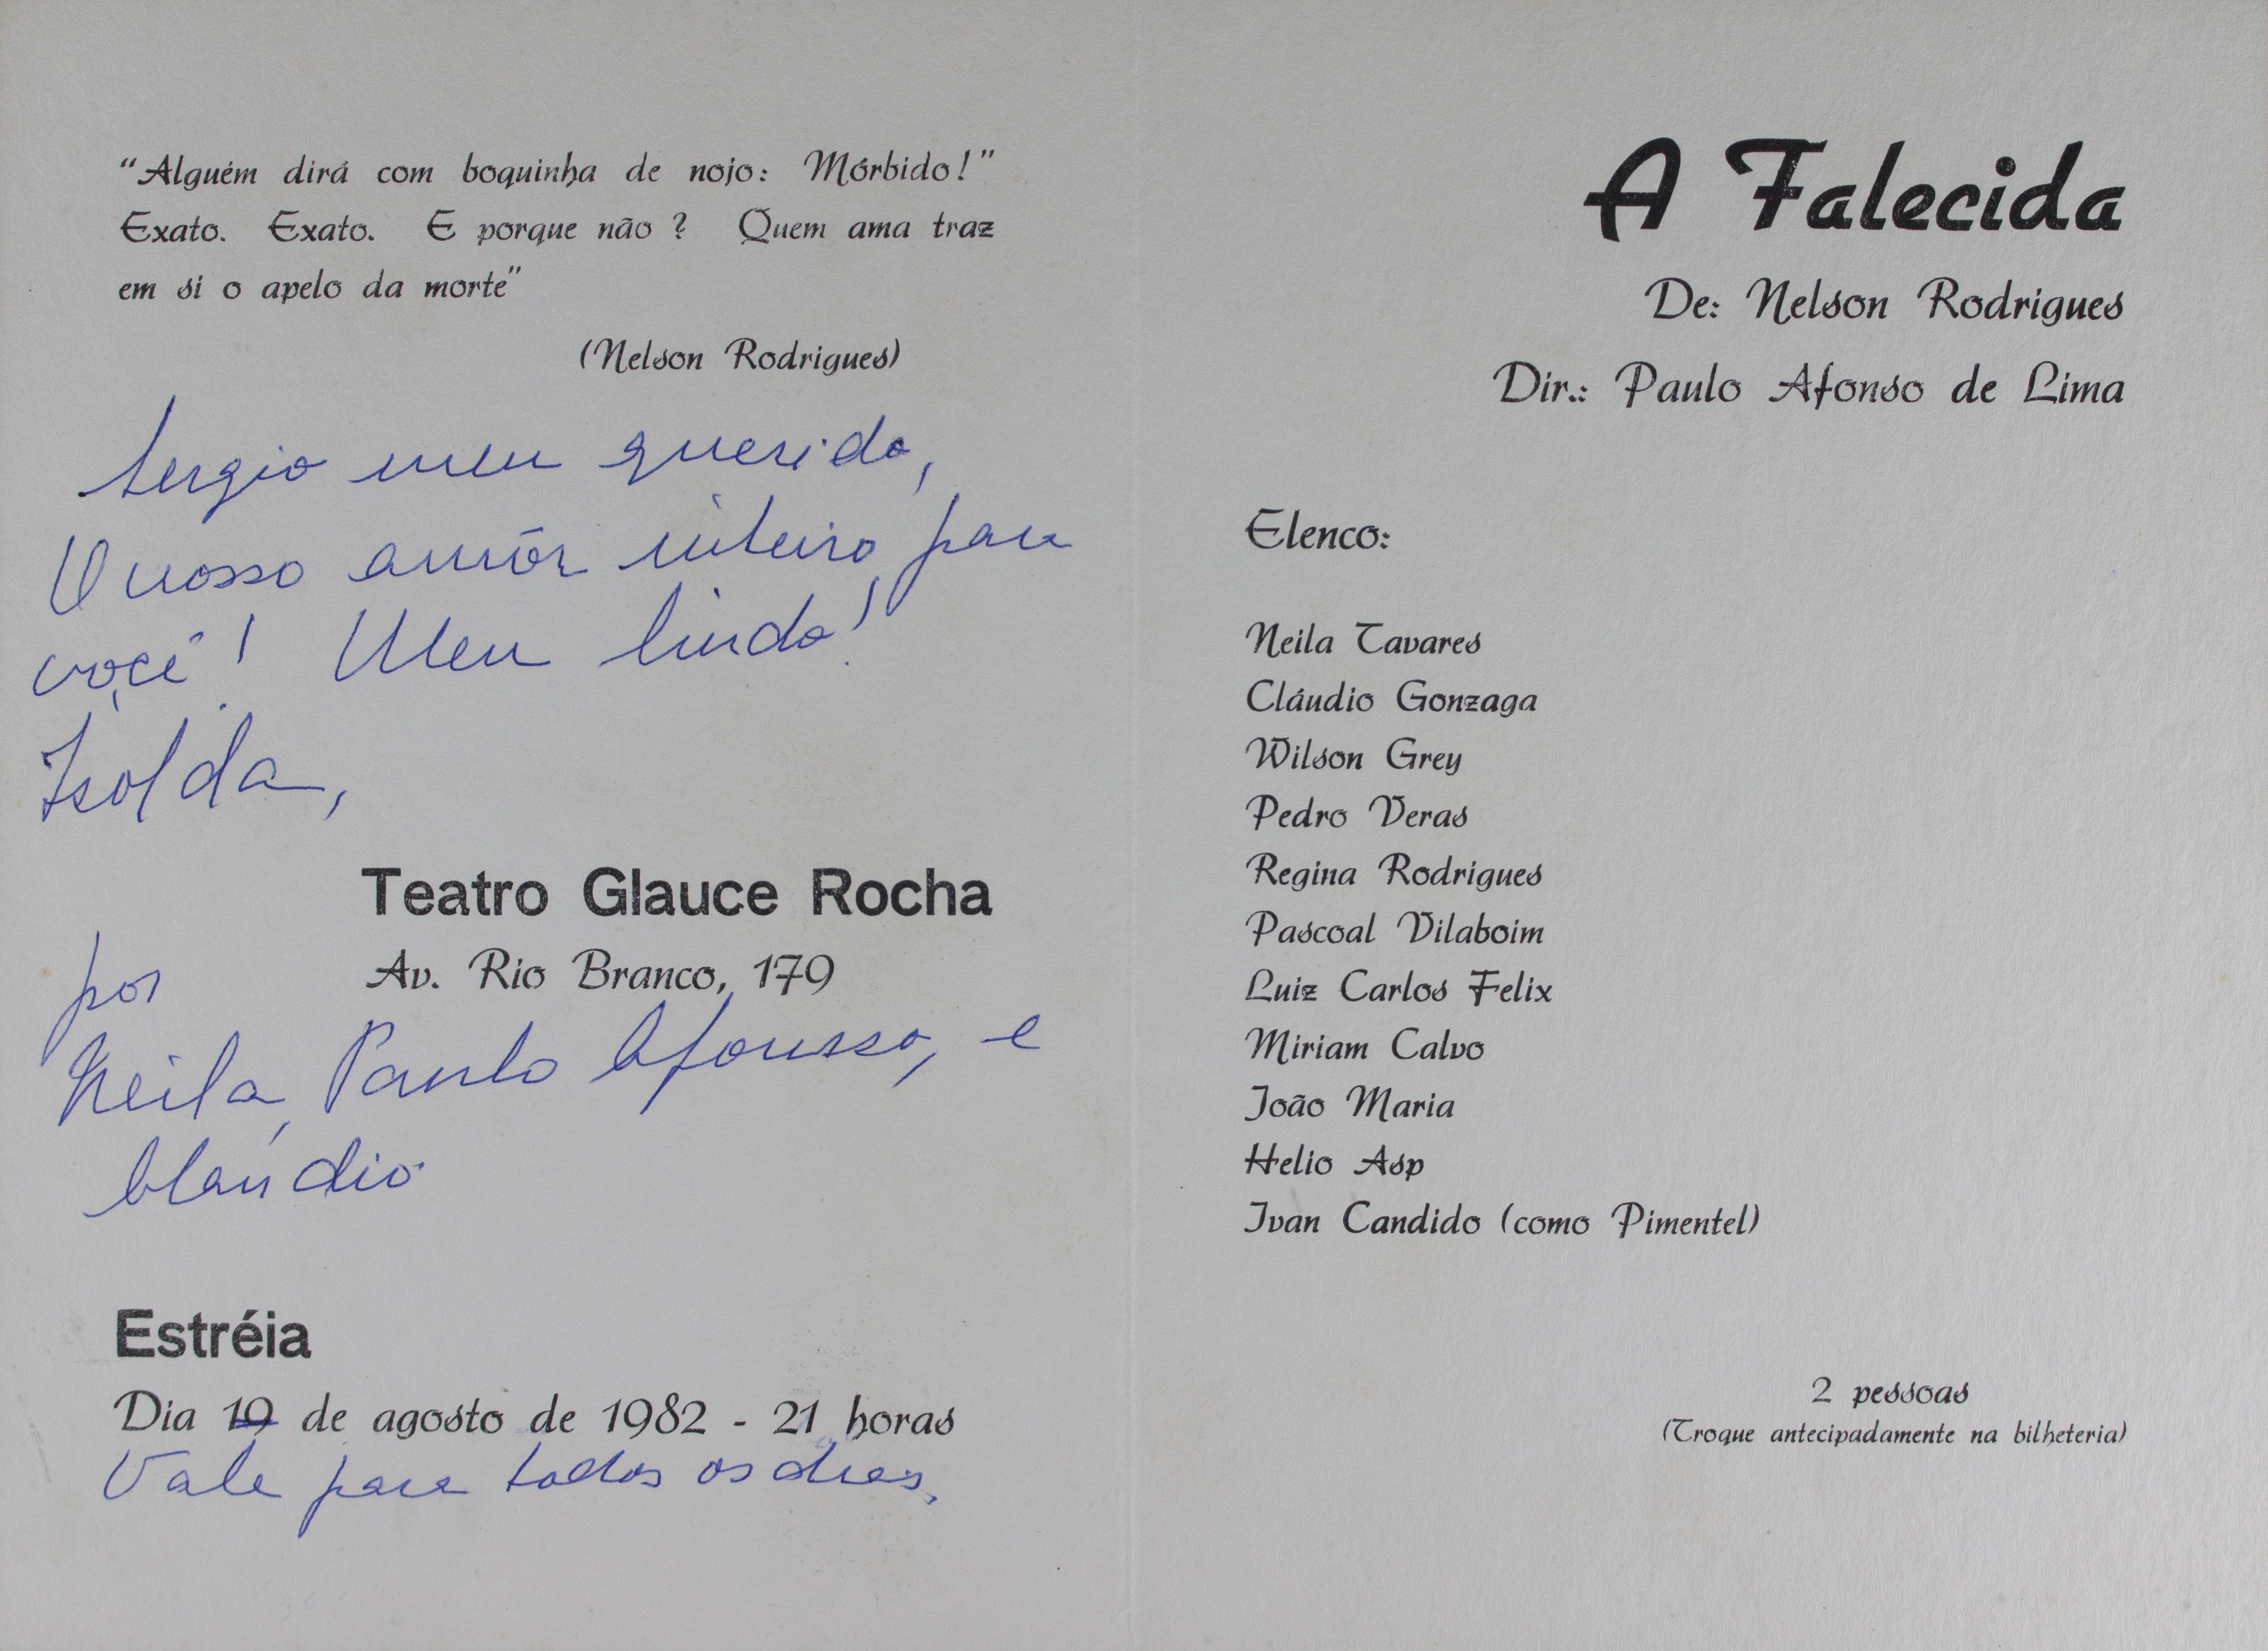 “Alguém dirá com boquinha de nojo: Mórbido!”
Exato. Exato. E porque não ? Quem ama traz
em si o apelo da morte”
(Nelson Rodrigues)
Sergio meu querido,
O nosso amôr inteiro para
você! Meu lindo!
Isolda,
Teatro Glauce Rocha
Av. Rio Branco, 179
por
Neila, Paulo Afonsso, e
Claúdio
Estréia
Dia 19 de agosto de 1982 - 21 horas
Vale para todos os dias.
A Falecida
De: Nelson Rodrigues
Dir.: Paulo Afonso de Lima
Elenco:
Neila Tavares
Cláudio Gonzaga
Wilson Grey
Pedro Veras
Regina Rodrigues
Pascoal Vilaboim
Luiz Carlos Felix
Miriam Calvo
João Maria
Helio Asp
Ivan Candido (como Pimentel)
2 pessoas
(Troque antecipadamente na bilheteria)